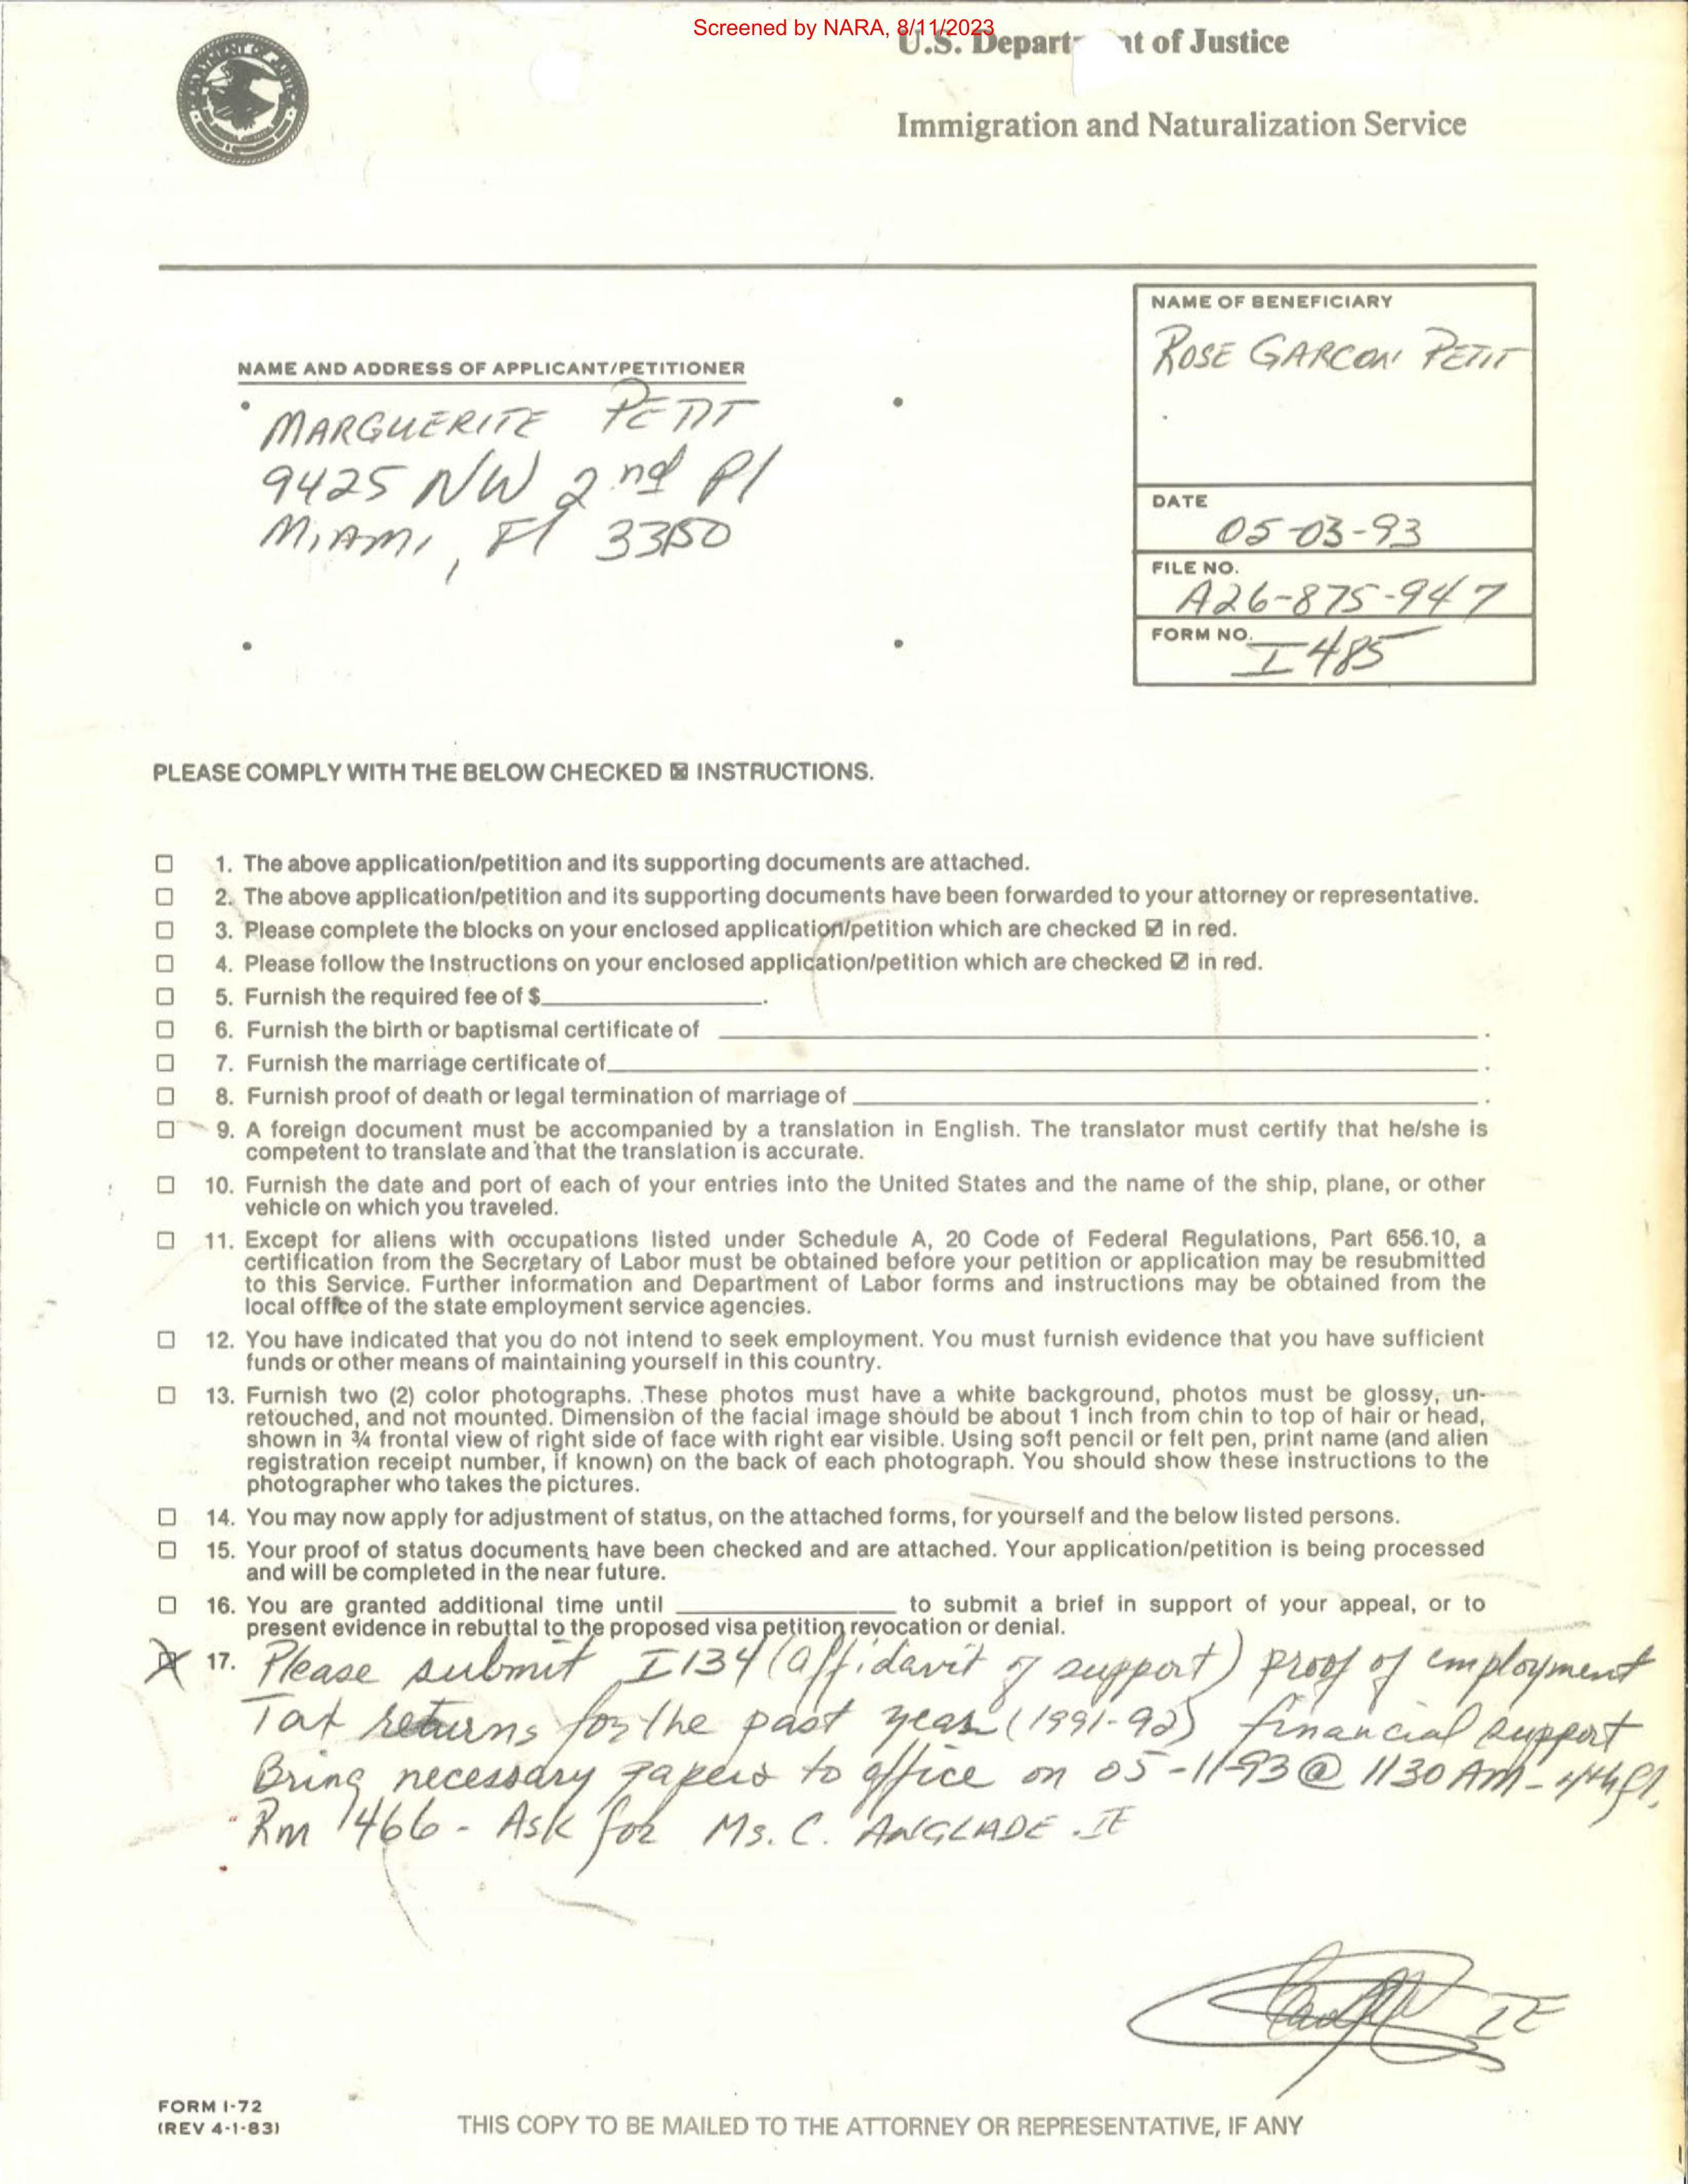 Screened by NARA, 8/11/2023
U.S. Depart nt of Justice
Immigration and Naturalization Service
NAME OF BENEFICIARY
ROSE GARCON PETIT
NAME AND ADDRESS OF APPLICANT/PETITIONER
MARGUERITE PETIT
9425 NW 2nd Pl
MiAMi, Fl 33150
DATE
05-03-93
FILE NO.
A26-875-947
FORM NO.
I485
PLEASE COMPLY WITH THE BELOW CHECKED ☒ INSTRUCTIONS.
☐ 1. The above application/petition and its supporting documents are attached.
☐ 2. The above application/petition and its supporting documents have been forwarded to your attorney or representative.
☐ 3. Please complete the blocks on your enclosed application/petition which are checked ☑ in red.
☐ 4. Please follow the Instructions on your enclosed application/petition which are checked ☑ in red.
☐ 5. Furnish the required fee of $____________.
☐ 6. Furnish the birth or baptismal certificate of ____________.
☐ 7. Furnish the marriage certificate of____________.
☐ 8. Furnish proof of death or legal termination of marriage of ____________.
☐ 9. A foreign document must be accompanied by a translation in English. The translator must certify that he/she is
competent to translate and that the translation is accurate.
☐ 10. Furnish the date and port of each of your entries into the United States and the name of the ship, plane, or other
vehicle on which you traveled.
☐ 11. Except for aliens with occupations listed under Schedule A, 20 Code of Federal Regulations, Part 656.10, a
certification from the Secretary of Labor must be obtained before your petition or application may be resubmitted
to this Service. Further information and Department of Labor forms and instructions may be obtained from the
local office of the state employment service agencies.
☐ 12. You have indicated that you do not intend to seek employment. You must furnish evidence that you have sufficient
funds or other means of maintaining yourself in this country.
☐ 13. Furnish two (2) color photographs. These photos must have a white background, photos must be glossy, un-
retouched, and not mounted. Dimension of the facial image should be about 1 inch from chin to top of hair or head,
shown in ¾ frontal view of right side of face with right ear visible. Using soft pencil or felt pen, print name (and alien
registration receipt number, if known) on the back of each photograph. You should show these instructions to the
photographer who takes the pictures.
☐ 14. You may now apply for adjustment of status, on the attached forms, for yourself and the below listed persons.
☐ 15. Your proof of status documents have been checked and are attached. Your application/petition is being processed
and will be completed in the near future.
☐ 16. You are granted additional time until ____________ to submit a brief in support of your appeal, or to
present evidence in rebuttal to the proposed visa petition revocation or denial.
☒ 17. Please submit I134 (affidavit of support) proof of employment
Tax returns for the past year (1991-92) financial support
Bring necessary papers to office on 05-11-93 @ 1130 AM - 4th fl.
Rm 1466 - Ask for Ms. C. ANGLADE - IE
IE
FORM I-72
(REV 4-1-83)
THIS COPY TO BE MAILED TO THE ATTORNEY OR REPRESENTATIVE, IF ANY